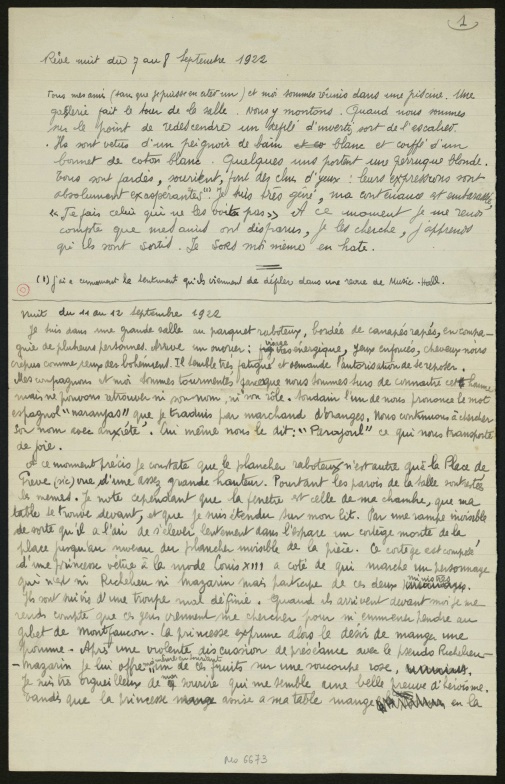 1
Rêve nuit du 7 au 8 Septembre 1922
Tous mes amis (sans que je puisse en citer un) et moi sommes réunis dans une piscine. Une
galerie fait le tour de la salle. Nous y montons. Quand nous sommes
sur le point de redescendre un défilé d'invertis sort de l'escalier.
Ils sont vêtus d'un peignoir de bain blanc et coiffé d'un
bonnet de coton blanc. Quelques uns portent une perruque blonde.
Tous sont fardés, sourient, font des clins d'yeux : leurs expressions sont
absolument exaspérantes (1). Je suis très gêné, ma contenance est embarassée,
"Je fais celui qui ne les voit pas" A ce moment je me rends
compte que mes amis ont disparus, je les cherche, j'apprends
qu'ils sont sortis. Je sors moi même en hate.
(1) j'ai à ce moment le sentiment qu'ils viennent de défiler dans une revue de Music-Hall.
Nuit du 11 au 12 Septembre 1922
Je suis dans une grande salle au parquet raboteux, bordée de canapés rapés, en compa-
gnie de plusieurs personnes. Arrive un ouvrier : visage très énergique, yeux enfoncés, cheveux noirs
crépus comme ceux des bohémiens. Il semble très fatigué et demande l'autorisation de se reposer.
Mes compagnons et moi sommes tourmentés parceque nous sommes surs de connaître cet homme
mais ne pouvons retrouver ni son nom, ni son rôle. Soudain l'un de nous prononce le mot
espagnol "naranjas" que je traduis par marchand d'oranges. Nous continuons à chercher
son nom avec anxiété. Lui même nous le dit : "" ce qui nous transporte
de joie.
A ce moment précis je constate que le plancher raboteux n'est autre que la Place de
Grève (sic) vue d'une assez grande hauteur. Pourtant les parois de la salle sont restées
les mêmes. Je note cependant que la fenêtre est celle de ma chambre, que ma
table se trouve devant, et que je suis étendu sur mon lit. Par une rampe invisible
de sorte qu'il a l'air de s'élever lentement dans l'espace un cortège monte de la
place jusqu'au niveau du plancher invisible de la pièce. Ce cortège est composé
d'une princesse vêtue à la mode Louis XIII à coté de qui marche un personnage
qui n'est ni Richelieu ni Mazarin mais participe de ces deux ministres.
Ils sont suivis d'une troupe mal définie. Quand ils arrivent devant moi je me
rends compte que ces gens viennent me chercher pour m'emmener pendre au
gibet de Montfaucon. La princesse exprime alors le désir de manger une
pomme. Après une violente discussion de préséance avec le pseudo Richelieu-
-Mazarin je lui offre un de ces fruits sur une soucoupe rose,
Je suis très orgueilleux de mon sourire qui me semble une belle preuve d'héroïsme.
tandis que la princesse assise à ma table mange en la
No 6673